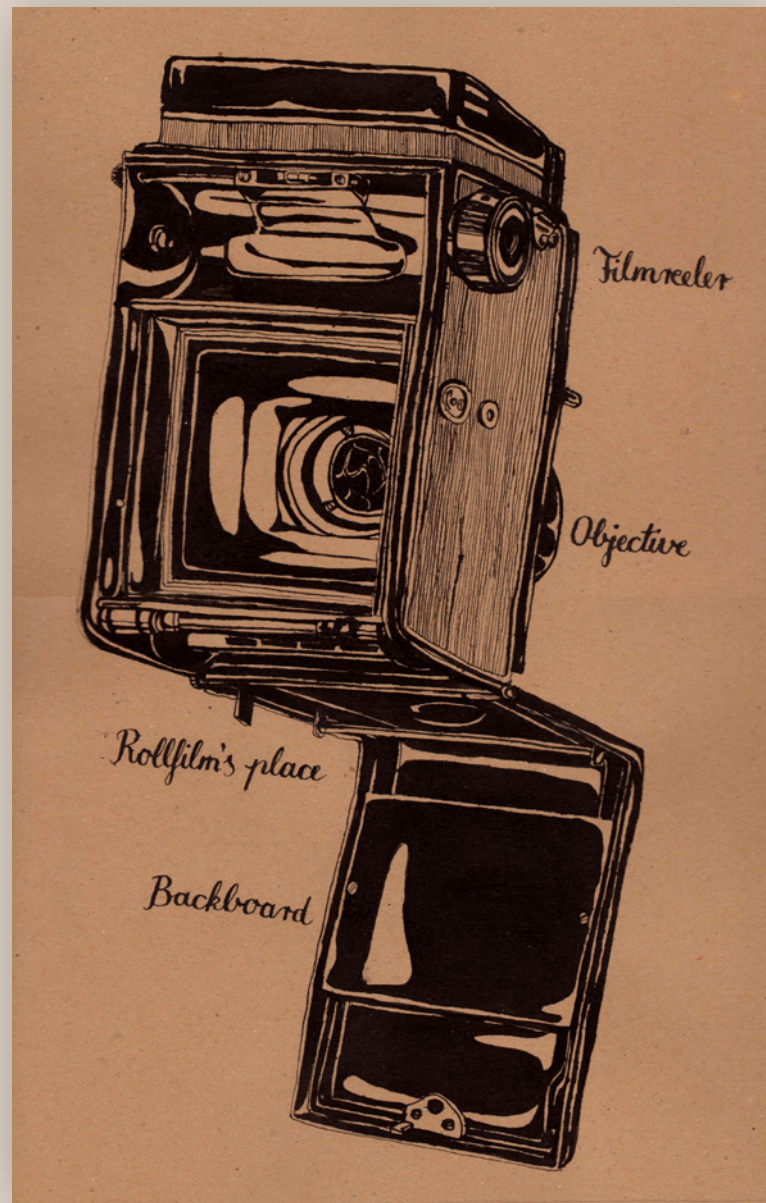 Filmreeler
Objective
Rollfilm's place
Backboard